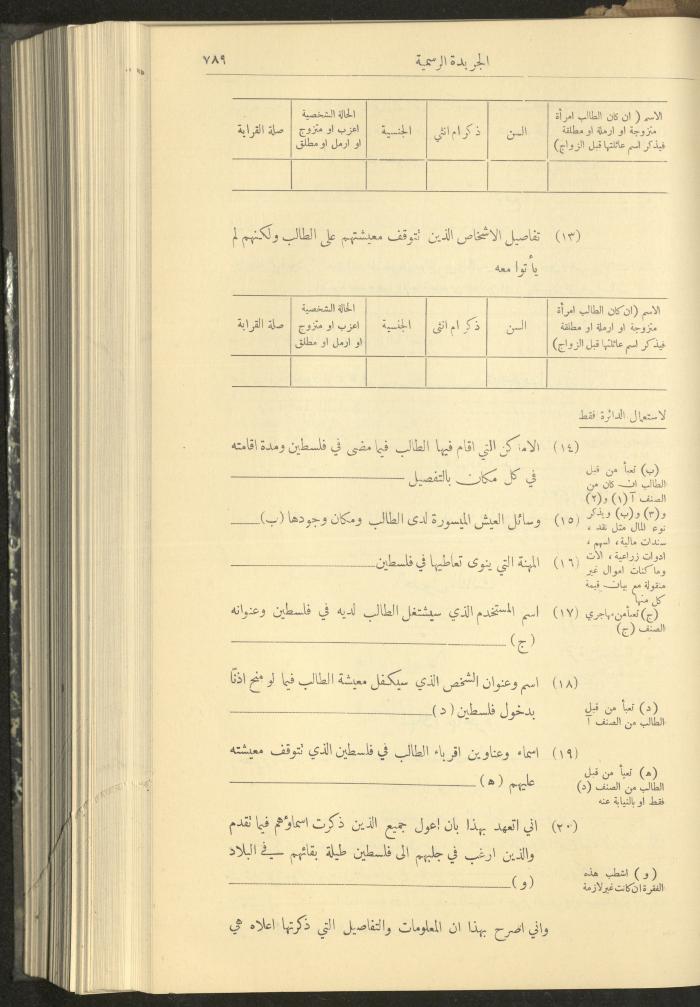 الجريدة الرسمية ٧٨٩
الاسم ( ان كان الطالب امرأة
متزوجة او ارملة او مطلقة
فيذكر اسم عائلتها قبل الزواج)
السن
ذكر ام انثي
الجنسية
الحالة الشخصية
اعزب او متزوج
او ارمل او مطلق
صلة القرابة
(١٣) تفاصيل الاشخاص الذين تتوقف معيشتهم على الطالب ولكنهم لم
يأتوا معه
الاسم (ان كان الطالب امرأة
متزوجة او ارملة او مطلقة
فيذكر اسم عائلتها قبل الزواج)
السن
ذكر ام انثى
الجنسية
الحالة الشخصية
اعزب او متزوج
او ارمل او مطلق
صلة القرابة
لاستعمال الدائرة فقط
(١٤) الاماكن التي اقام فيها الطالب فيما مضى في فلسطين ومدة اقامته
في كل مكان بالتفصيل
(ب) تعبأ من قبل
الطالب ان كان من
الصنف آ (١) و(٢)
و(٣) و(ب) ويذكر
نوع المال مثل نقد ،
سندات مالية ، اسهم ،
ادوات زراعية ، الات
وماكنات اموال غير
منقولة مع بيان قيمة
كل منها
(١٥) وسائل العيش الميسورة لدى الطالب ومكان وجودها (ب)
(١٦) المهنة التي ينوى تعاطيها في فلسطين
(ج) تعبأ من مهاجري
الصنف (ج)
(١٧) اسم المستخدم الذي سيشتغل الطالب لديه في فلسطين وعنوانه
(ج)
(١٨) اسم وعنوان الشخص الذي سيكفل معيشة الطالب فيما لو منح اذنًا
بدخول فلسطين (د)
(د) تعبأ من قبل
الطالب من الصنف آ
(١٩) اسماء وعناوين اقرباء الطالب في فلسطين الذي تتوقف معيشته
عليهم (ه)
(ه) تعبأ من قبل
الطالب من الصنف (د)
فقط او بالنيابة عنه
(٢٠) اني اتعهد بهذا بان اعول جميع الذين ذكرت اسماؤهم فيما تقدم
والذين ارغب في جلبهم الى فلسطين طيلة بقائهم في البلاد
(و)
(و) اشطب هذه
الفقرة ان كانت غير لازمة
واني اصرح بهذا ان المعلومات والتفاصيل التي ذكرتها اعلاه هي